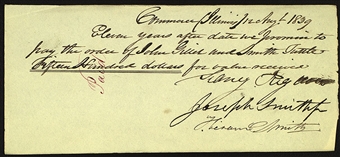 Commerce Illinois Augt 1839
Eleven years after date we promise to
pay the order of John Gillid and Smith Tuttle
Fifteen Hundred dollars for value received
Paid
Joseph Smith
Hiram Smith